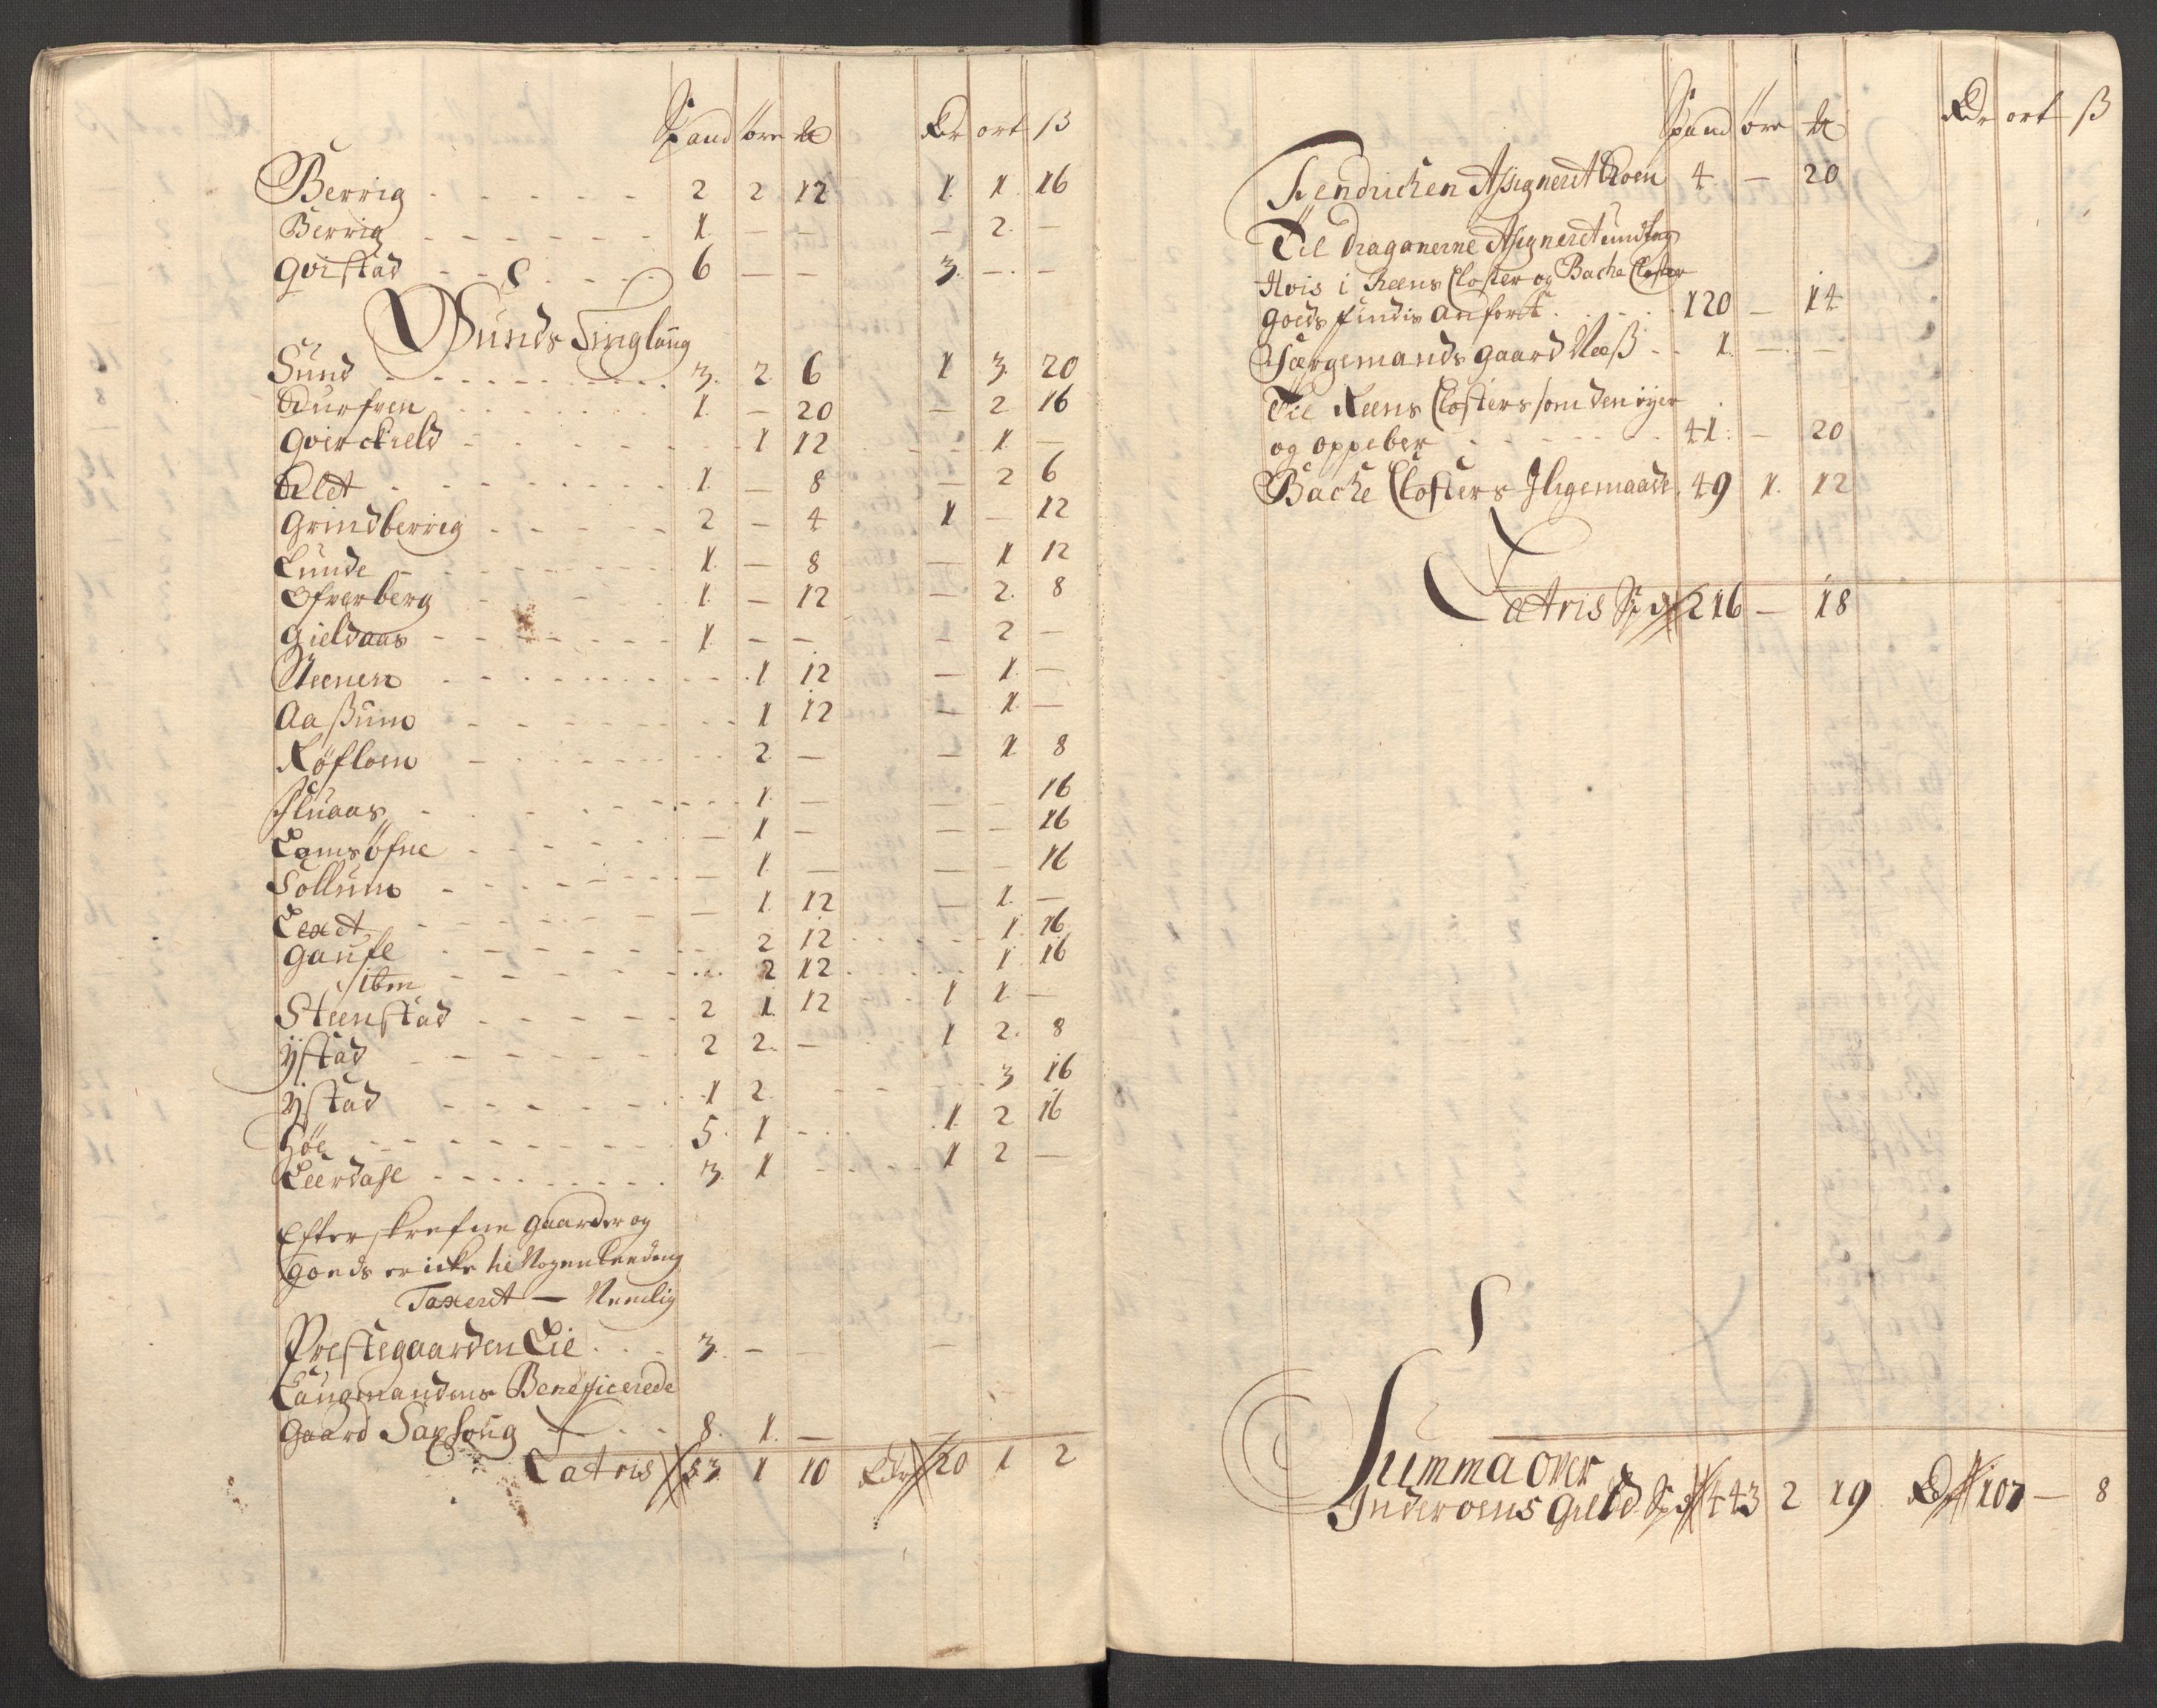 Spand øre ℔ Rdr ort ß
Berrig - - - - - 2 2 12 1 1 16
Berrig - - - - - - 1 — — — 2 —
Qvistad - - - - 6 — — 3 — —
Sunds Tinglaug
Sund - - - - - - - 3 2 6 1 3 20
Aurfven - - - - - 1 — 20 — 2 16
Qverckield - - - - - 1 12 - - 1 —
Alet - - - - - - 1 — 8 — 2 6
Grindberrig - - - - - 2 — 4 1 — 12
Lunde - - - - - - 1 — 8 — 1 12
Ofverberg - - - - 1 — 12 — 2 8
Gieldaas - - - - - - 1 — — — 2 —
Steenen - - - - - - 1 12 — 1 —
Aaßum - - - - - - 1 12 — 1 —
Røfloen - - - - - - 2 — — 1 8
Fluaas - - - - - - 1 — — — 16
Lomsøfne - - - - - — 1 — — — 16
Sollum - - - - - - — 1 — — — 16
Leact - - - - - - — 1 12 — 1 —
Gaufle - - - - - - 2 12 - - 1 16
Ibm - - - - - - 2 12 - - 1 16
Steenstad - - - - - 2 1 12 - 1 1 —
ÿstad - - - - - - 2 2 — 1 2 8
ÿstad - - - - - 1 2 - - 3 16
Høe - - - - - - - 5 1 - - 1 2 16
Leerdahl - - - - - - - 3 1 - - 1 2 —
Efterskrefne gaarder og
goeds er icke til Nogen Leeding
Taxerit — Nemlig
Prestegaarden Eie - - - 3 — — —
Laugmandens Beneficerede
Gaard Saxhoug - - 8 1 —
Latris 53 1 10 Rdr 20 1 2
Spand øre ℔ Rdr ort ß
Fendrichen Assigneret Roen 4 — 20
Til Dragonerne Assigneret undtag
Hvis i Reens Closter og Bache Closter
goeds findis anført - - - 120 — 14
Færgemands gaard Næß - - 1 — —
Til Reens Closters som den eyer
og oppeber - - - - - - 41 — 20
Bache Closters Iligemaade 49 1 12
Latris Spd 216 — 18
Summa over
Inderoens Gield Spd 443 2 19 Rdr 107 — 8